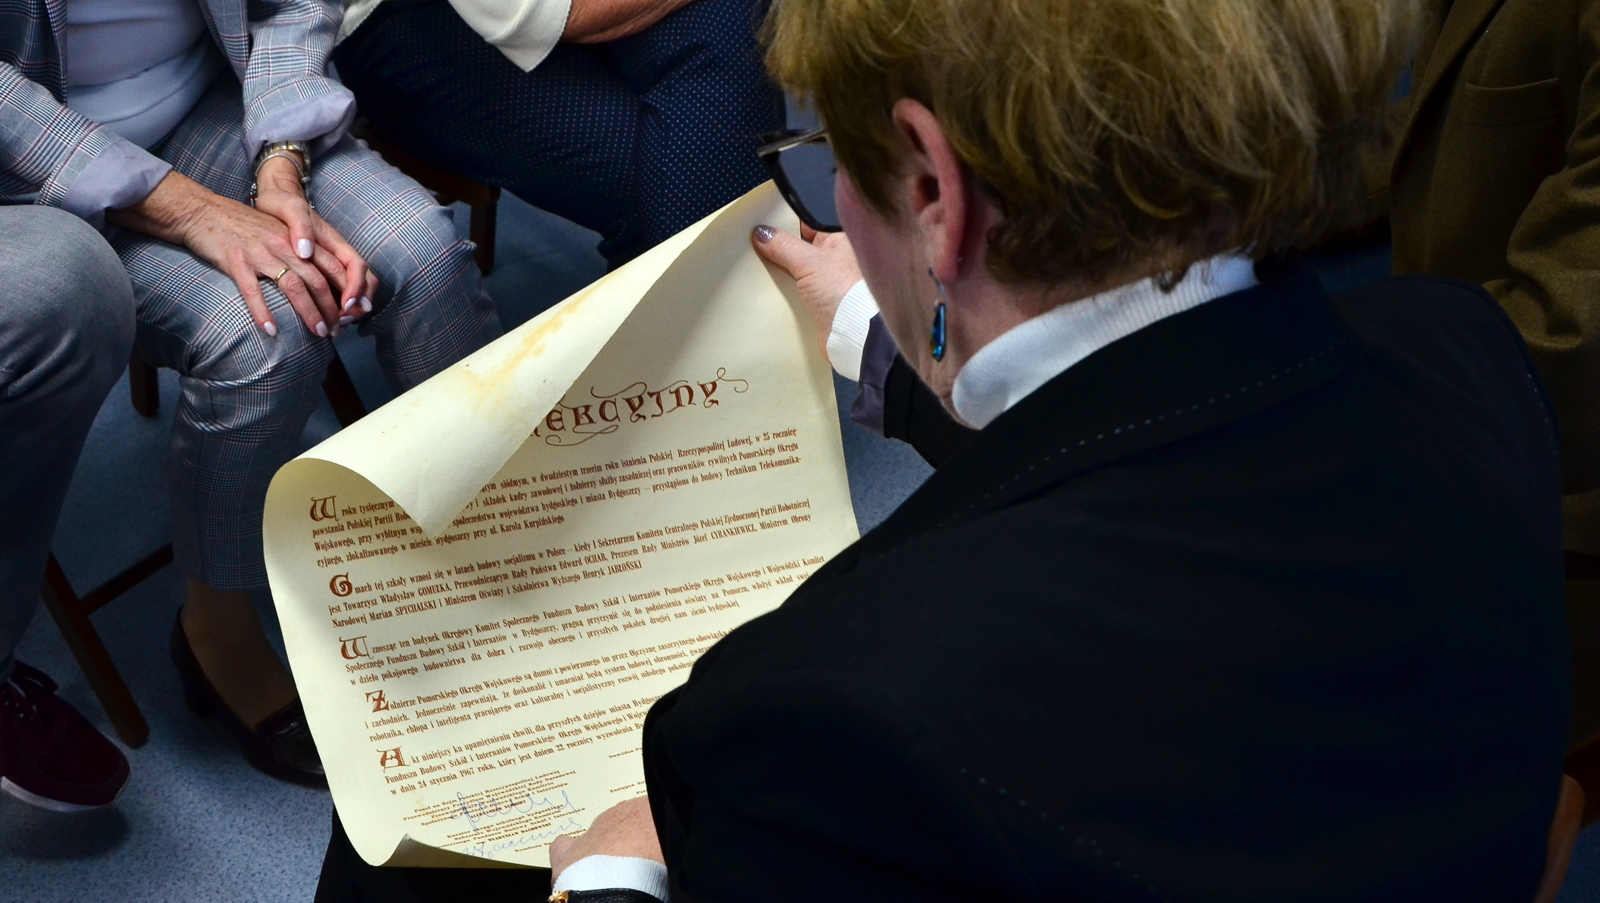 ERCYJNY
W roku tysięcznym siódmym, w dwudziestym trzecim roku istnienia Polskiej Rzeczypospolitej Ludowej, w 25 rocznicę
powstania Polskiej Partii i składek kadry zawodowej i żołnierzy służby zasadniczej oraz pracowników cywilnych Pomorskiego Okręgu
Wojskowego, przy wybitnym społeczeństwa województwa bydgoskiego i miasta Bydgoszczy — przystąpiono do budowy Technikum Telekomunika-
cyjnego, zlokalizowanego w mieście Bydgoszczy przy ul. Karola Kurpińskiego
Gmach tej szkoły wznosi się w latach budowy socjalizmu w Polsce — kiedy I Sekretarzem Komitetu Centralnego Polskiej Zjednoczonej Partii Robotniczej
jest Towarzysz Władysław GOMUŁKA, Przewodniczącym Rady Państwa Edward OCHAB, Prezesem Rady Ministrów Józef CYRANKIEWICZ, Ministrem Obrony
Narodowej Marian SPYCHALSKI i Ministrem Oświaty i Szkolnictwa Wyższego Henryk JABŁOŃSKI
Wznosząc ten budynek Okręgowy Komitet Społecznego Funduszu Budowy Szkół i Internatów Pomorskiego Okręgu Wojskowego i Wojewódzki Komitet
Społecznego Funduszu Budowy Szkół i Internatów w Bydgoszczy, pragną przyczynić się do podniesienia oświaty na Pomorzu, włożyć wkład swej
w dzieło pokojowego budownictwa dla dobra i rozwoju obecnego i przyszłych pokoleń drogiej nam ziemi bydgoskiej
Żołnierze Pomorskiego Okręgu Wojskowego są dumni z powierzonego im przez Ojczyznę zaszczytnego obowiązku
i zachodnich. Jednocześnie zapewniają, że doskonalić i umacniać będą system ludowej obronności,
robotnika, chłopa i inteligenta pracującego oraz kulturalny i socjalistyczny rozwój młodego
Akt niniejszy ku upamiętnieniu chwili, dla przyszłych dziejów miasta
Funduszu Budowy Szkół i Internatów Pomorskiego Okręgu Wojskowego i
w dniu 24 stycznia 1967 roku, który jest dniem 22 rocznicy wyzwolenia
Poseł na Sejm Polskiej Rzeczypospolitej Ludowej
Przewodniczący Prezydium Wojewódzkiej Rady Narodowej
Kurator okręgu szkolnego bydgoskiego
Sekretarz Wojewódzkiego Komitetu
Funduszu Budowy Szkół i Internatów